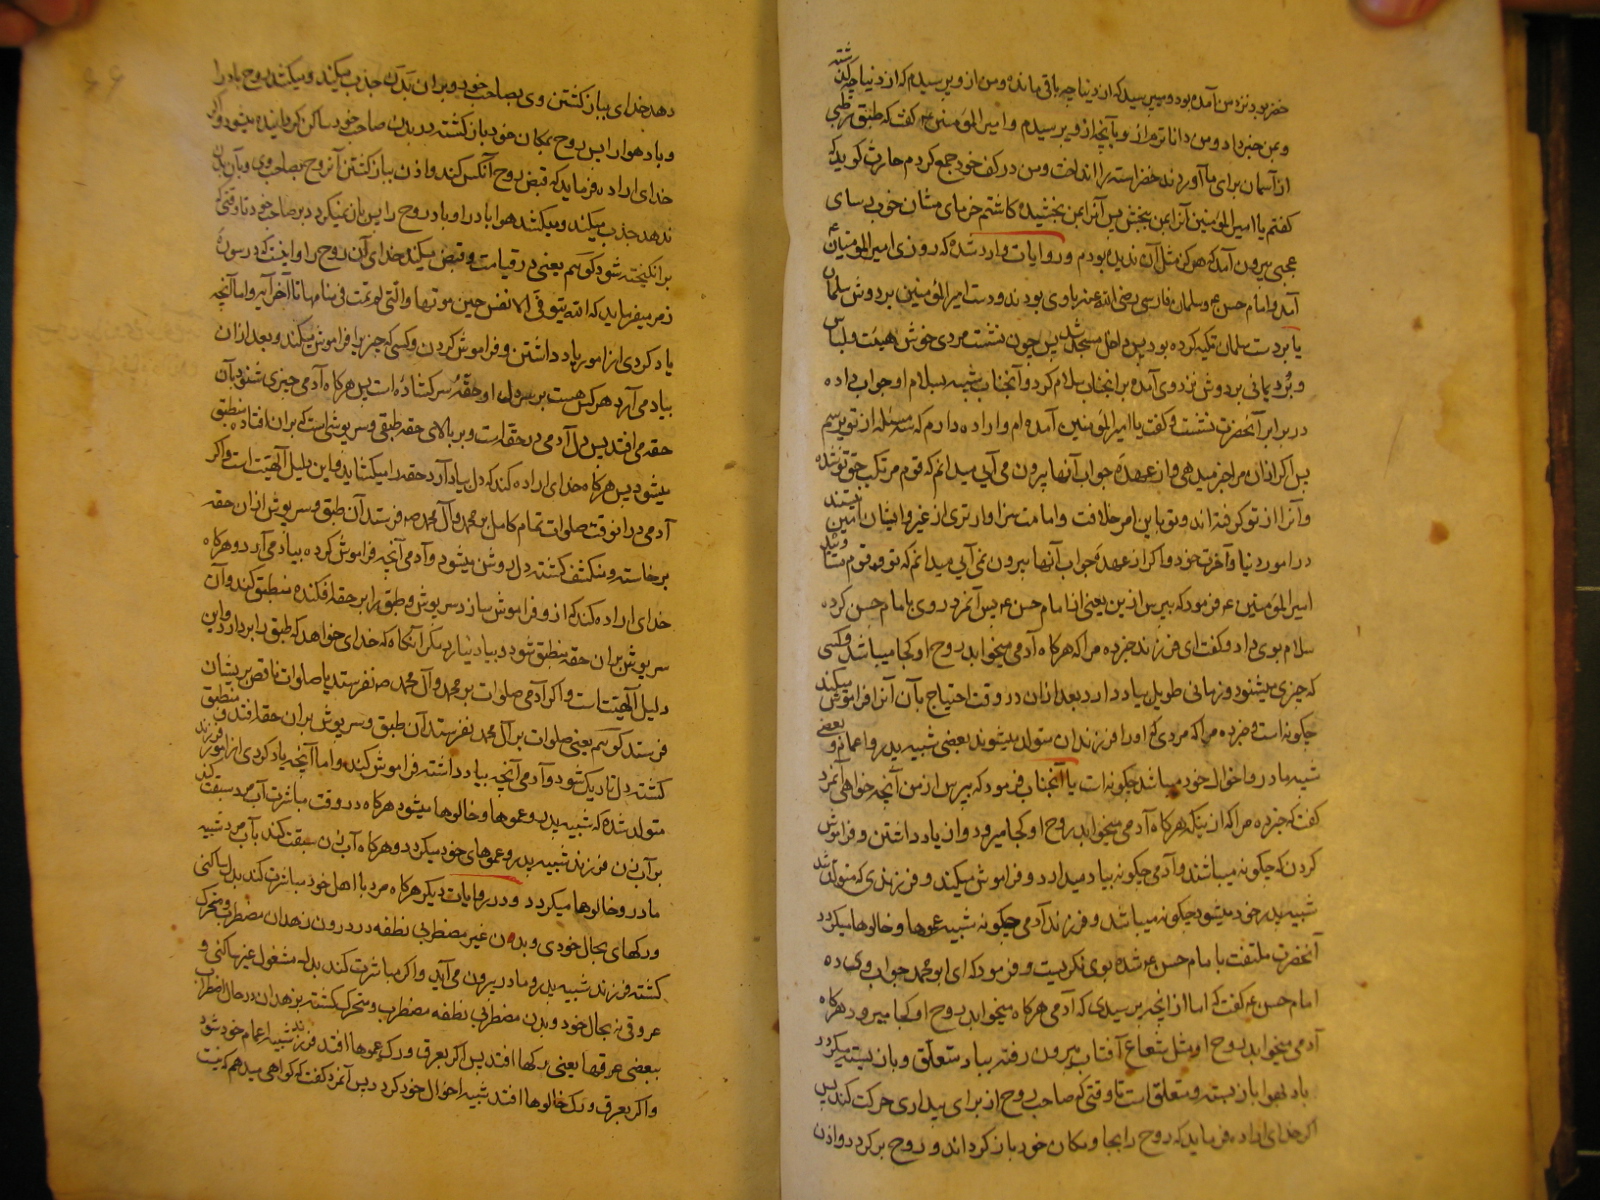 خضر بود نزد من آمده بود و میپرسید که از دنیا چه باقی مانده و من از وی پرسیدم که از دنیا چه گذشته
و بمن خبر داد و من داناترم از او بآنچه از وی پرسیدم و امیرالمؤمنین ع گفت که طبق رطبی
از آسمان برای ما آوردند خضر استه را انداخت و من در کف خود جمع کردم حارث گوید که
گفتم یا امیرالمؤمنین آنرا بمن ببخش پس آنرا بمن بخشیده کاشتم خرمای مشان خوب رسای
عجبی بیرون آمد که هرگز مثل آن ندیده بودم و روایات وارد شده که روزی امیرالمؤمنین ع
آمد و امام حسن ع و سلمان فارسی رضی الله عنه با وی بودند و دست امیرالمؤمنین بر دوش سلمان
یا بر دست سلمان تکیه کرده بود پس داخل مسجد شد پس چون نشست مردی خوش هیئت و لباس
و بُرد یمانی بر دوش نزد وی آمده بر آنجناب سلام کرد و آنجناب سلام او جواب داده
در برابر آنحضرت نشست و گفت یا امیرالمؤمنین آمده‌ام و اراده دارم که سه مسئله از تو بپرسم
پس اگر از آن مرا خبر میدهی و از عهدهٔ جواب آنها بیرون می آیی میدانم که قوم مرتکب حق تو شده
و آنرا از تو گرفته‌اند و تو باین امر خلافت و امامت سزاوارتری از غیر و ایشان امین نیستند
در امور دنیا و آخرت خود و اگر از عهدهٔ جواب آنها بیرون نمی آیی میدانم که تو و قوم مساوی
امیرالمؤمنین ع فرمود که بپرس از این یعنی از امام حسن ع پس آنمرد روی بامام حسن کرده
سلام بوی داد و گفت ای فرزند خبر ده مرا که هرگاه آدمی میخوابد روح او کجا میباشد و کسی
که چیزی میشنود و زمانی طویل بیاد دارد بعد از آن در وقت احتیاج بآن آنرا فراموش میکند
چگونه است و خبر ده مرا که مردی که او را فرزندان متولد میشوند بعضی شبیه پدر و اعمام و بعضی
شبیه مادر و اخوال خود میباشد چگونه است یا آنجناب فرمود که بپرس از من آنچه خواهی آنمرد
گفت که خبر ده مرا که از اینکه هرگاه آدمی میخوابد روح او کجا میرود و از یاد داشتن و فراموش
کردن که چگونه میباشند و آدمی چگونه بیاد میدارد و فراموش میکند و فرزندی که متولد شد
شبیه پدر خود میشود چگونه میباشد و فرزند آدمی چگونه شبیه عموها و خالوها میگردد
آنحضرت ملتفت بامام حسن ع شده بوی نگریست و فرمود که ای ابو محمد جواب وی ده
امام حسن ع گفت که اما از آنچه پرسیدی که آدمی هرگاه میخوابد روح او کجا میرود هرگاه
آدمی میخوابد روح او مثل شعاع آفتاب بیرون رفته بباد متعلق و بآن بسته میگردد
باد بهوا باز بسته و متعلق است تا وقتی که صاحب روح از برای بیداری حرکت کند پس
اگر خدای اراده فرماید که روح را بجا و مکان خود بازگرداند و روح برگردد و اذن
دهد خدای بباز گشتن وی بصاحب خود و بر آن بدن جذب میکند و میکشد روح باد را
و باد هوا را پس روح بمکان خود بازگشته در بدن صاحب خود ساکن گردانیده میشود و اگر
خدای اراده فرماید که قبض روح آنکس کند و اذن بباز گشتن آن روح بصاحب وی و بآن بدن
ندهد جذب میکند و میکشد هوا باد را و باد روح را پس باز نمیگردد بر صاحب خود تا وقتی که
برانگیخته شود گویم یعنی در قیامت و قبض میکند خدای آن روح را و اینست که در سورهٔ
زمر میفرماید که الله یتوفی الانفس حین موتها والتی لم تمت فی منامها تا آخر آیه و اما آنچه
یاد کردی از امور یاد داشتن و فراموش کردن و کسی که چیزیرا فراموش میکند و بعد از آن
بیاد می آرد هر کس هست بر سر دل او حقهٔ سرگشاده است پس هرگاه آدمی چیزی شنود بآن
حقه می افتد پس دل آدمی در حقه است و بر بالای حقه طبقی و سرپوشی است که بر آن افتاده منطبق
میشود پس هرگاه خدای اراده کند که دل بیاد آرد حقه را میکشاید و این دلیل آلهیتست و اگر
آدمی در آنوقت صلوات تمام کامل بر محمد و آل محمد ص فرستد آن طبق و سرپوش از آن حقه
برخاسته و منکشف گشته دل روشن میشود و آدمی آنچه فراموش کرده بیاد می آرد و هرگاه
خدای اراده کند که از و فراموش سازد سرپوش و طبق را بر حقه افکنده منطبق کند و آن
سرپوش بر آن حقه منطبق شود و بیاد نیارد مگر آنگاه که خدای خواهد که طبق را بردارد و این
دلیل آلهیتست و اگر آدمی صلوات بر محمد و آل محمد ص نفرستد یا صلوات ناقص بر ایشان
فرستد گویم یعنی صلوات بر آل محمد نفرستد آن طبق و سرپوش بر آن حقه افتد و منطبق
گشته دل تاریک شود و آدمی آنچه بیاد داشته فراموش کند و اما آنچه یاد کردی از امور فرزند
متولد شده که شبیه پدر و عموها و خالوها میشود هرگاه در وقت مباشرت آب مرد سبقت کند
بر آب زن فرزند شبیه پدر و عموهای خود میگردد و هرگاه آب زن سبقت کند بآب مرد شبیه
مادر و خالوها میگردد و در روایات دیگر هرگاه مرد با اهل خود مباشرت کند بدل ساکنی
و رگهای بحال خودی و بدن غیر مضطربی نطفه در درون زهدان مضطرب و متحرک
گشته فرزند شبیه پدر و مادر بیرون می آید و اگر مباشرت کند بدل مشغول غیر ساکنی و
عروقی نه بحال خود و بدن مضطربی نطفه مضطرب و متحرک گشته بزهدان در حال اضطراب
ببعضی عرقها یعنی رگها افتد پس اگر بعرق و رگ عموها افتد فرزند شبیه اعمام خود شود
و اگر بعرق و رگ خالوها افتد شبیه اخوال خود گردد پس آنمرد گفت که گواهی میدهم که نیست